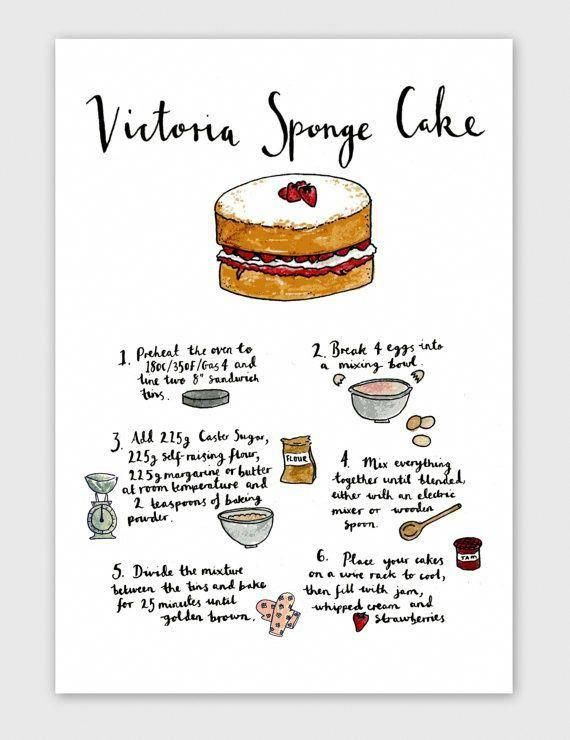 Victoria Sponge Cake
1. Preheat the oven to
180C/350F/Gas 4 and
line two 8" sandwich
tins.
2. Break 4 eggs into
a mixing bowl.
3. Add 225g Caster Sugar,
225g self-raising flour,
225g margarine or butter
at room temperature and
2 teaspoons of baking
powder.
FLOUR
4. Mix everything
together until blended,
either with an electric
mixer or wooden
spoon.
5. Divide the mixture
between the tins and bake
for 25 minutes until
golden brown.
6. Place your cakes
on a wire rack to cool,
then fill with jam,
whipped cream and
strawberries
JAM